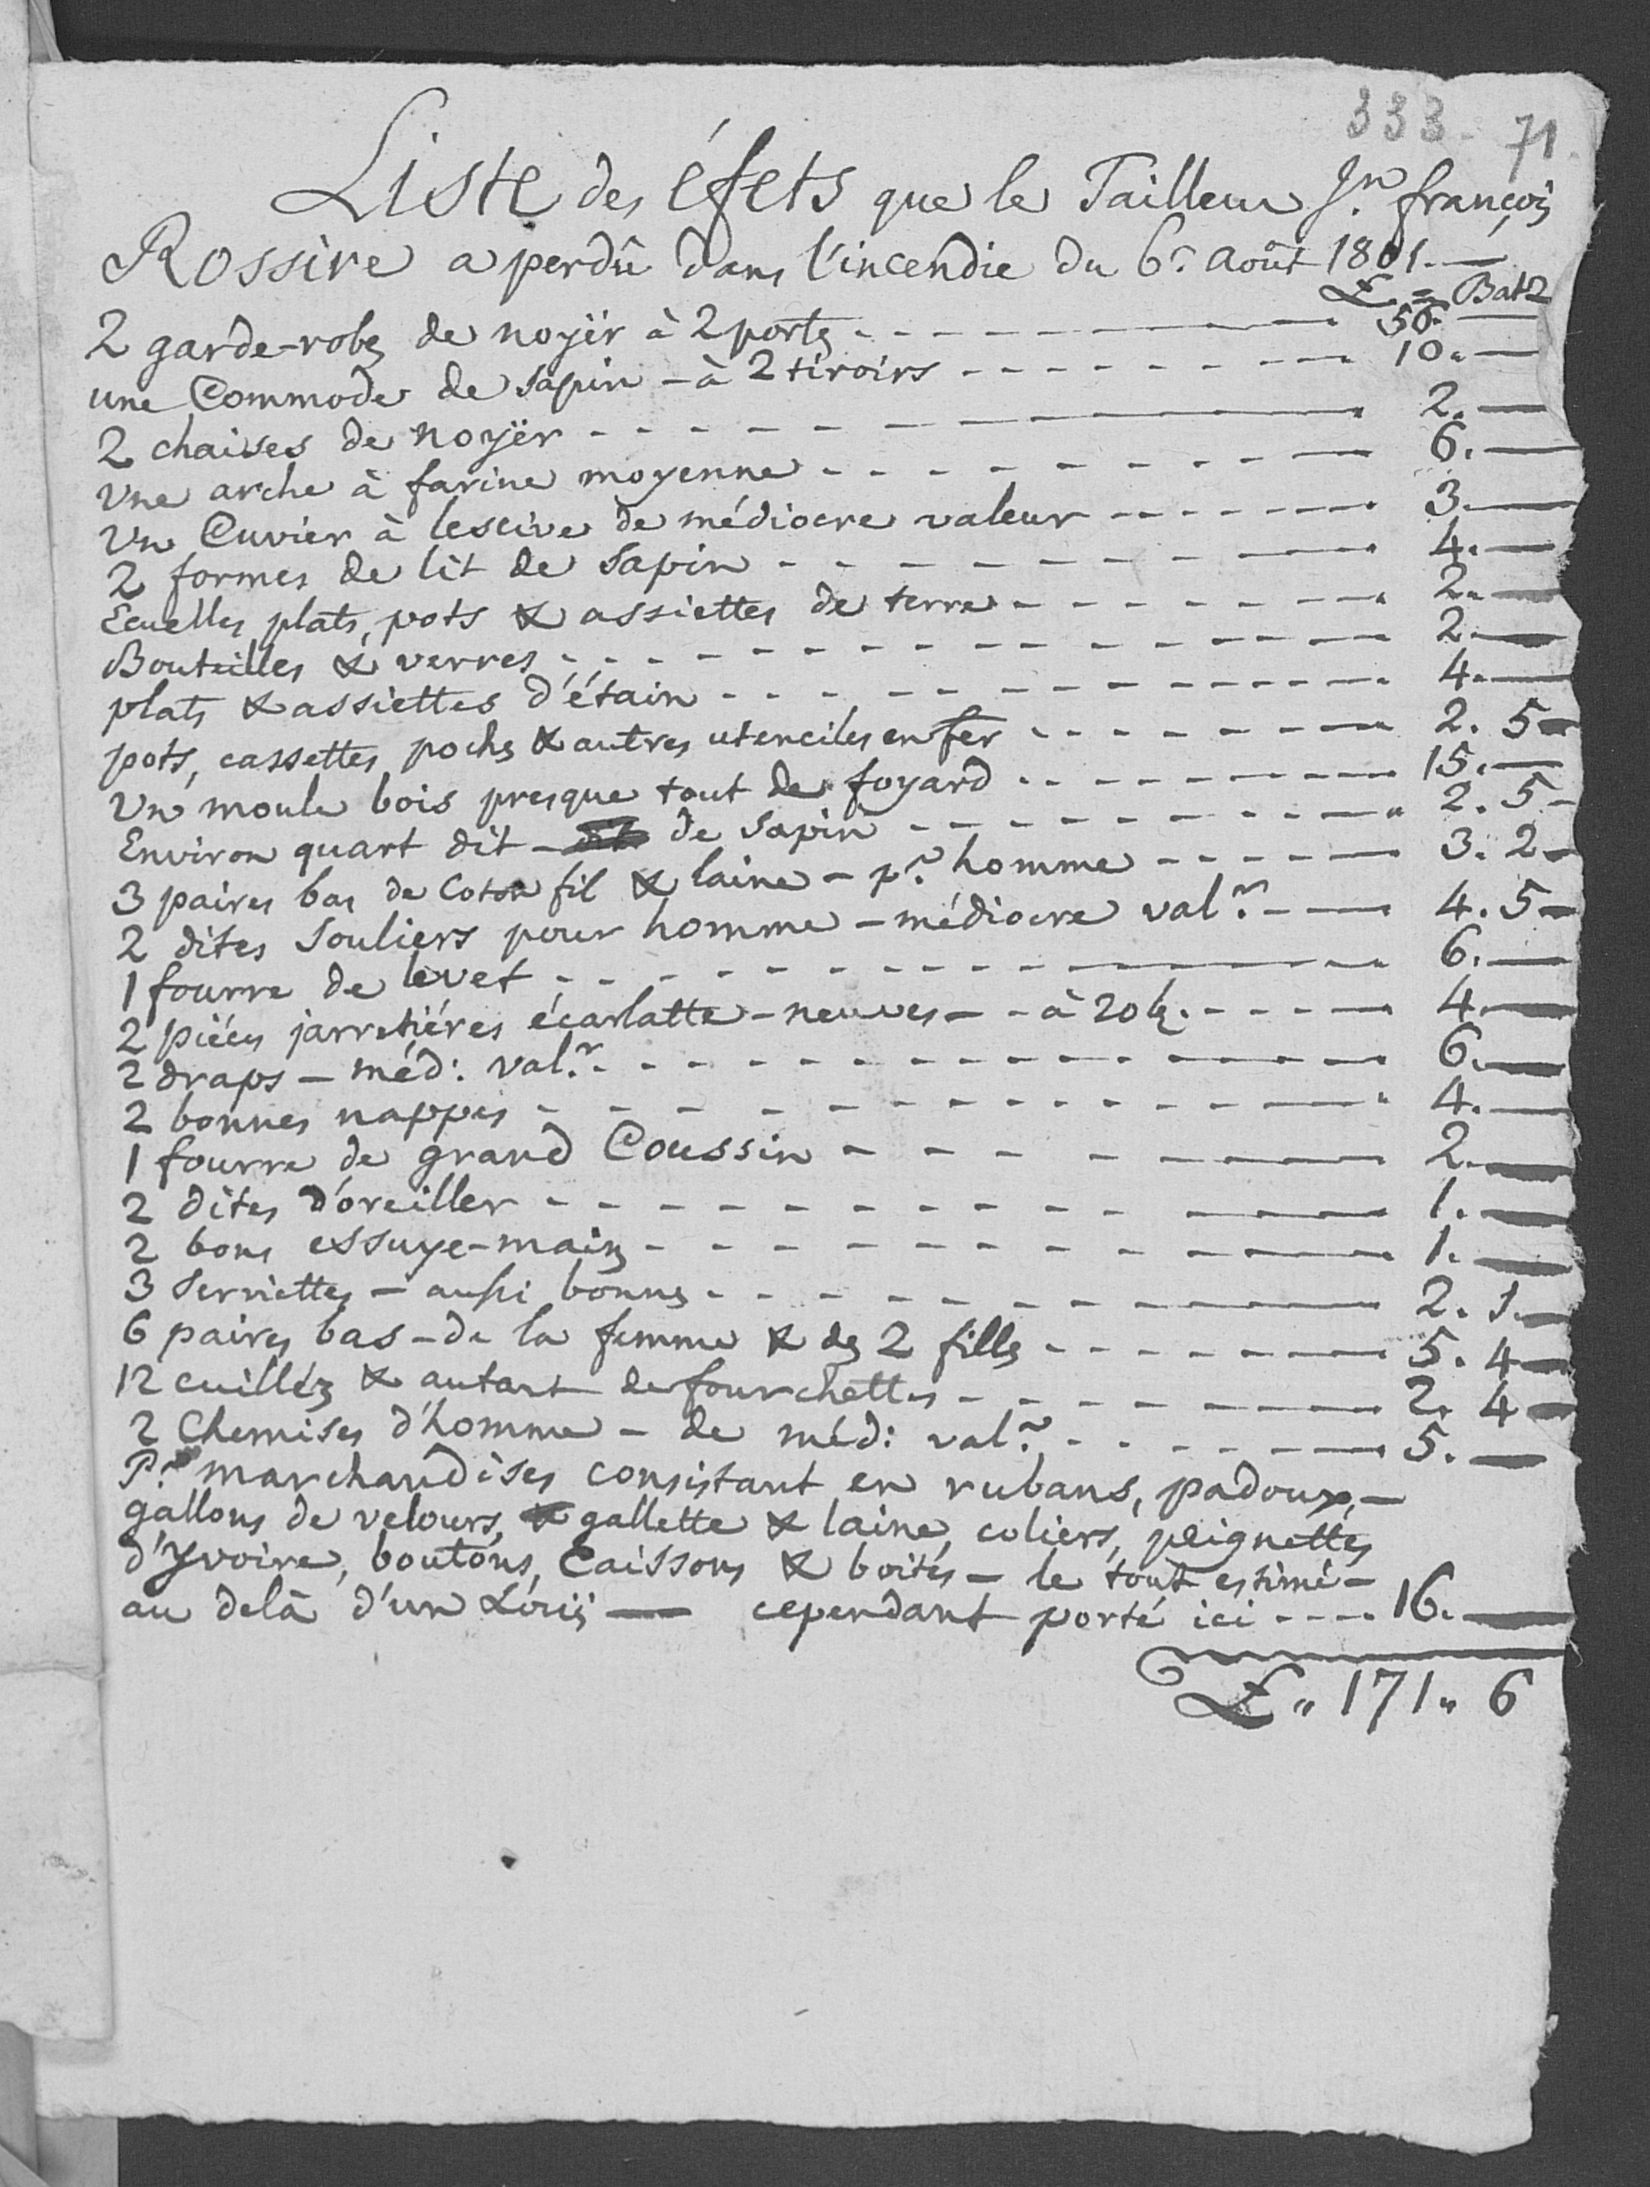 333. 71.
Liste des éfets que le Tailleur Jn. françois
Rossire a perdû dans l'incendie du 6e. Août 1801.—
L. = Batz
2 garde-robes de noyër à 2 portes - - - - 56. —
une Commode de Sapin - à 2 tiroirs - - - - 10. —
2 chaises de noyër - - - - 2. —
Une arche à farine moyenne - - - - 6. —
Un Cuvier à lescive de médiocre valeur - - - - 3. —
2 formes de lit de Sapin - - - - 4. —
Ecuelles, plats, pots & assiettes de terre - - - - 2. —
Bouteilles & verres - - - - 2. —
plats & assiettes d'étain - - - - 4. —
pots, cassettes, poches & autres utenciles en fer - - - - 2. 5 -
Un moule bois presque tout de foyard - - - - 15. —
Environ quart dit - de Sapin - - - - 2. 5 -
3 paires bas de Coton fil & laine - pr. homme - - - - 3. 2 -
2 dites Souliers pour homme - médiocre valr. - - - - 4. 5 -
1 fourre de levet - - - - 6. —
2 piéces jarretiéres écarlatte - neuves - - à 20 bz. - - - - 4. —
2 draps - méd: valr. - - - - 6. —
2 bonnes nappes - - - - 4. —
1 fourre de grand Coussin - - - - 2. —
2 dites d'oreiller - - - - 1. —
2 bons essuye-mains - - - - 1. —
3 Serviettes - aussi bonnes - - - - 2. 1. -
6 paires bas - de la femme & des 2 filles - - - - 5. 4 -
12 cuilléz & autant de fourchettes - - - - 2. 4 -
2 Chemises d'homme - de méd: valr. - - - - 5. —
Pr. marchandises consistant en rubans, padoux, -
gallons de velours, & gallette & laine, coliers, peignettes
d'yvoire, boutons, Caissons & boites - le tout estimé -
au delà d'un Loüis — cependant porté ici - - - - 16. —
L. „ 171 „ 6